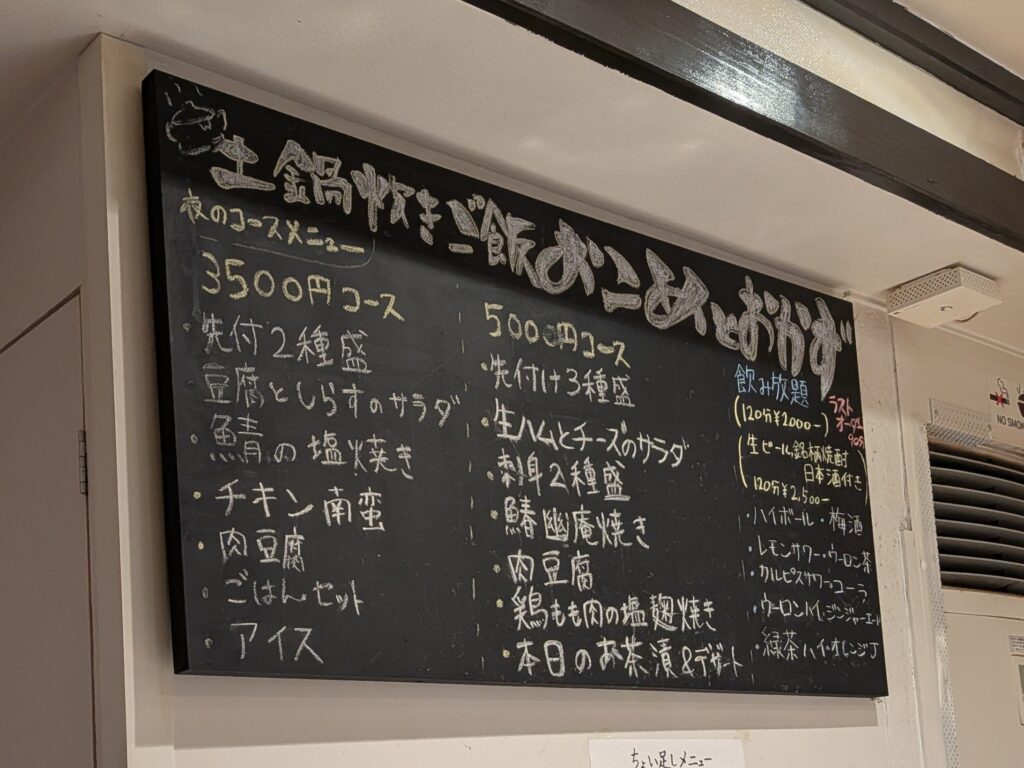 土鍋炊きご飯おこめとおかず
夜のコースメニュー
3500円コース
・先付2種盛
・豆腐としらすのサラダ
・鯖の塩焼き
・チキン南蛮
・肉豆腐
・ごはんセット
・アイス
5000円コース
・先付け3種盛
・生ハムとチーズのサラダ
・刺身2種盛
・鰆幽庵焼き
・肉豆腐
・鶏もも肉の塩麹焼き
・本日のお茶漬&デザート
飲み放題
(120分¥2000-)
ラスト
オーダー
90分
(生ビール,銘柄焼酎
日本酒付き)
120分¥2,500-
・ハイボール・梅酒
・レモンサワー・ウーロン茶
・カルピスサワー・コーラ
・ウーロンハイ・ジンジャーエール
・緑茶ハイ・オレンジJ
ちょい足しメニュー
NO SMOKING